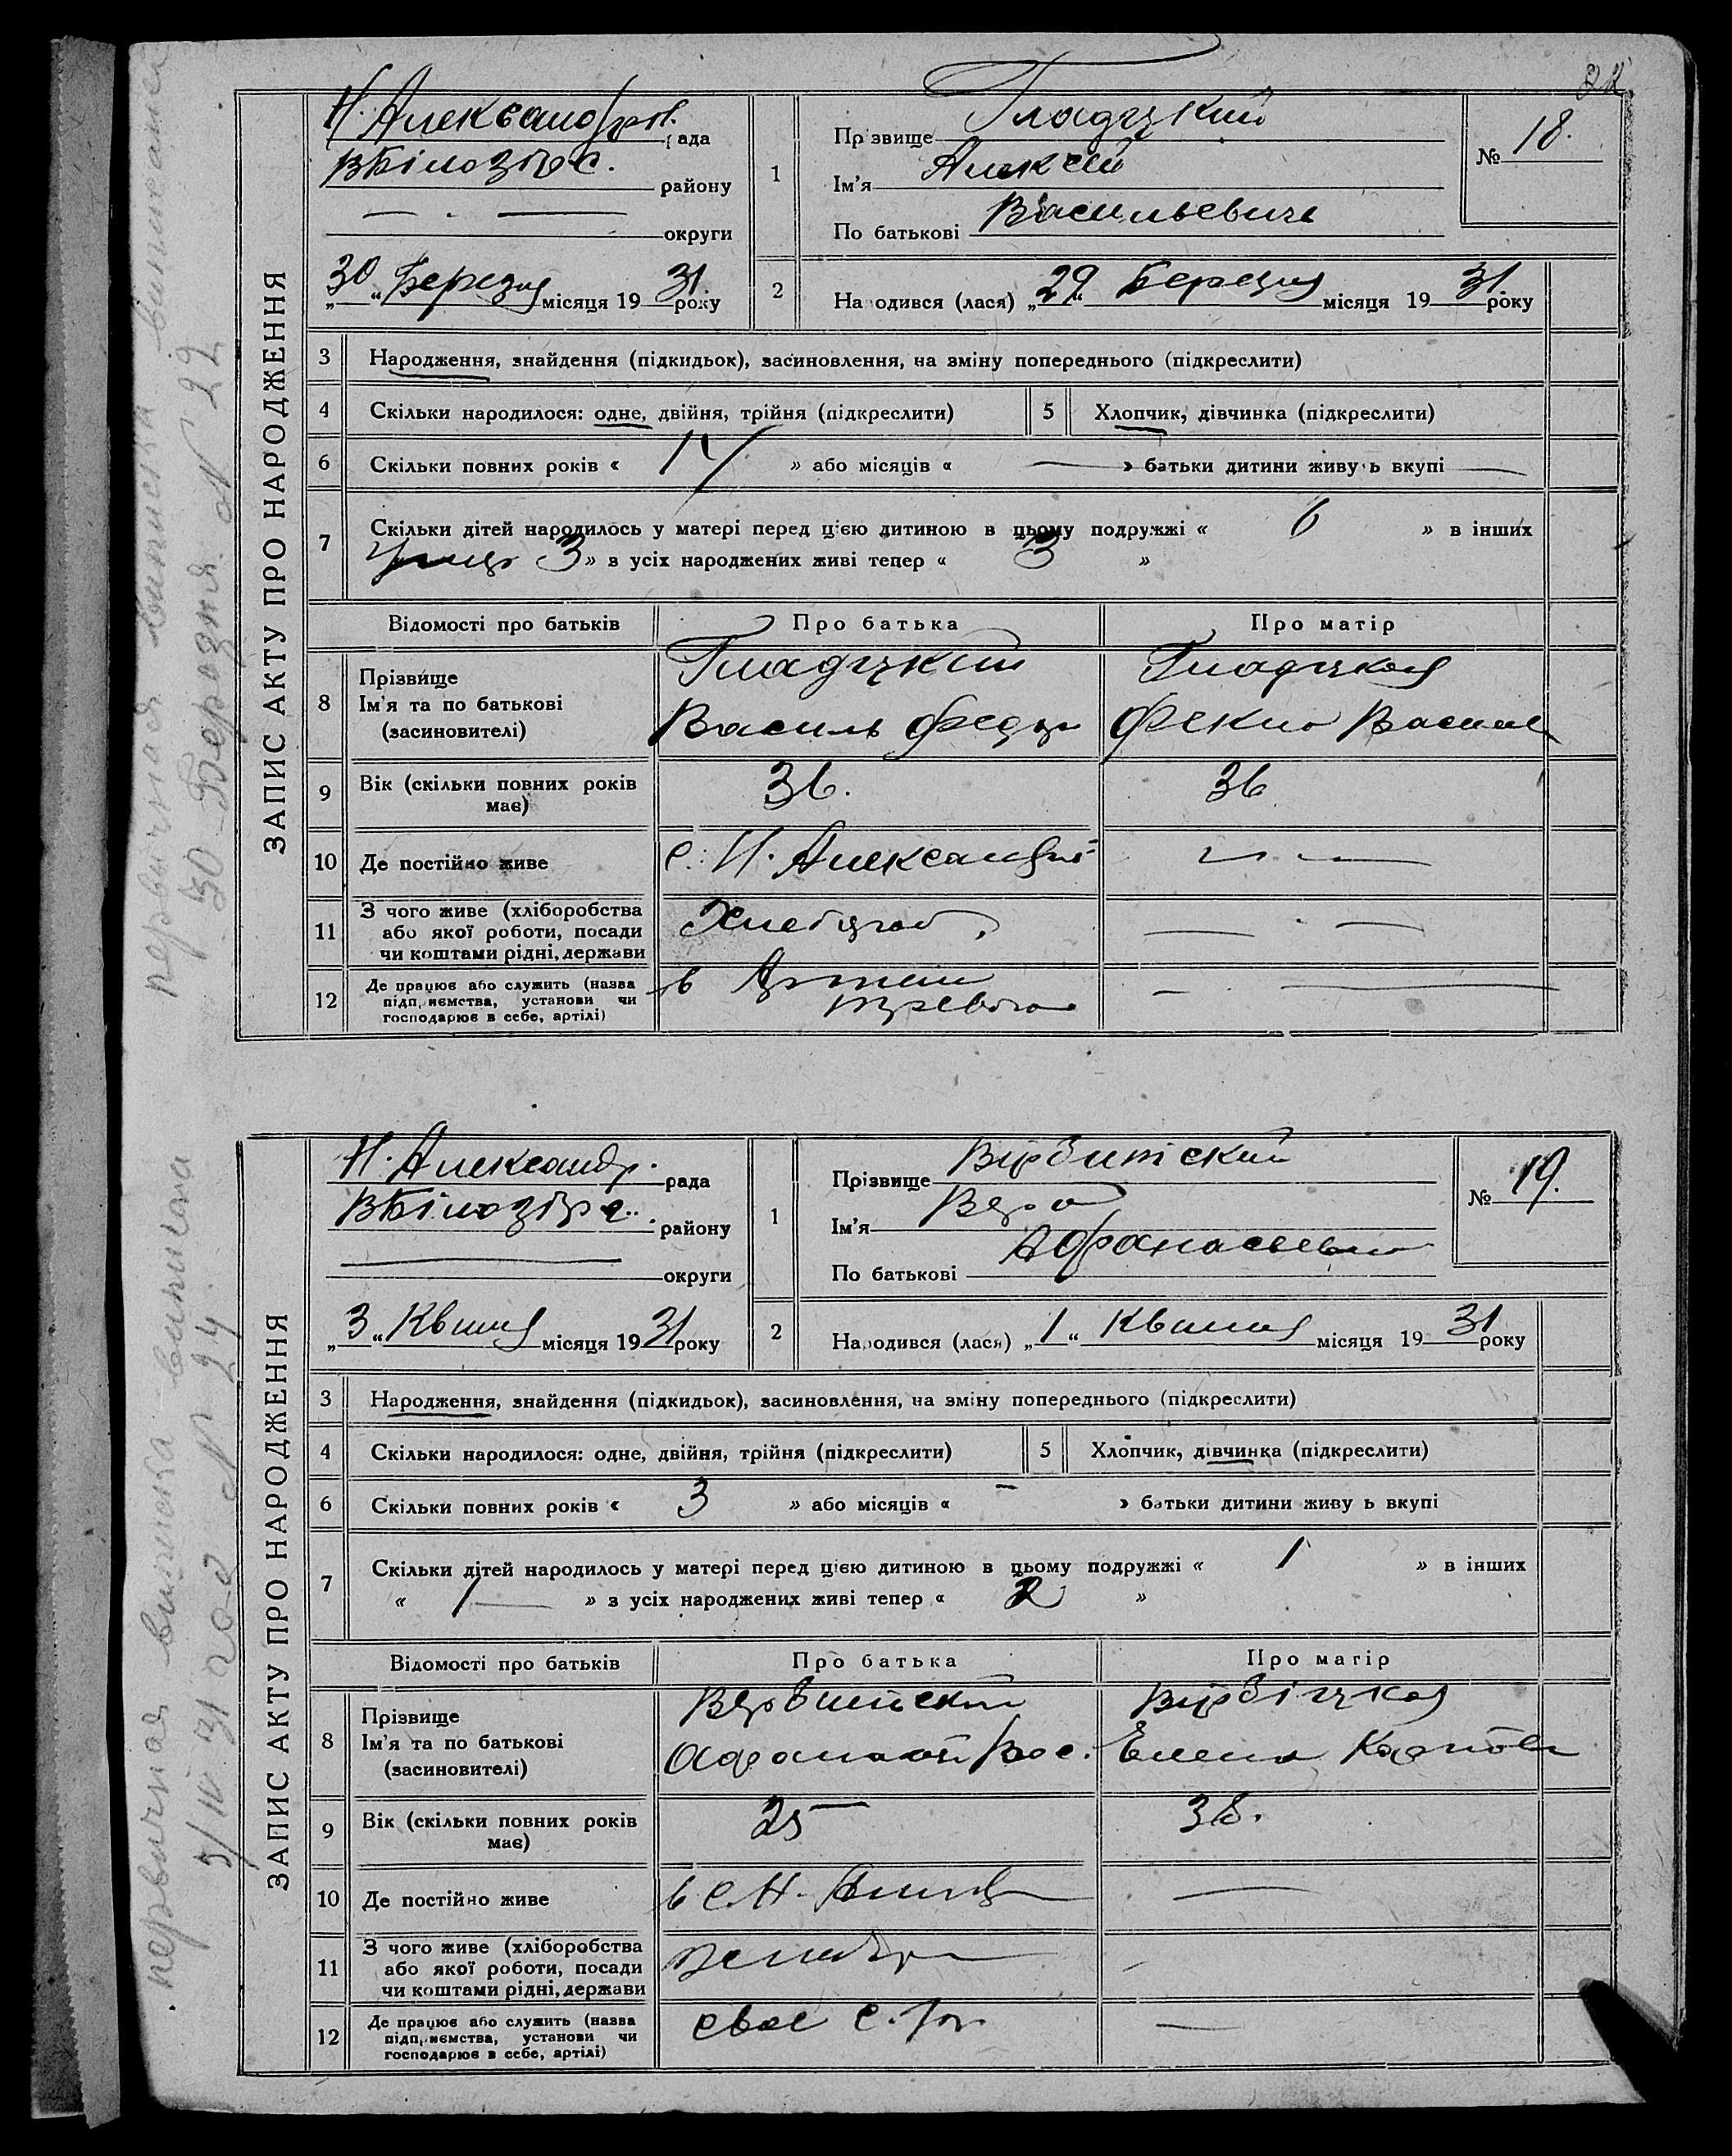 ЗАПИС АКТУ ПРО НАРОДЖЕННЯ
Н. Александров. рада
ВБілозірс. району
округи
„30“ Березня місяця 1931 року
1
Прізвище Гладуцкий
Ім'я Алексей
По батькові Васильевичь
№ 18.
2
Народився (лася) „29“ Березня місяця 1931 року
3 Народження, знайдення (підкидьок), засиновлення, на зміну попереднього (підкреслити)
4 Скільки народилося: одне, двійня, трійня (підкреслити)
5 Хлопчик, дівчинка (підкреслити)
6 Скільки повних років « » або місяців « — » батьки дитини живуть вкупі —
7 Скільки дітей народилось у матері перед цією дитиною в цьому подружжі « 6 » в інших
3 » в усіх народжених живі тепер « 3 »
Відомості про батьків Про батька Про матір
8 Прізвище
Ім'я та по батькові
(засиновителі)
Гладуцкий
Василь Федор
Гладуцкая
Фекла Васил
9 Вік (скільки повних років
має)
36.
36
10 Де постійно живе
с. Н. Александр
11 З чого живе (хліборобства
або якої роботи, посади
чи коштами рідні, держави
Хлебороб
12 Де працює або служить (назва
підприємства, установи чи
господарює в себе, артілі)
в Артели
первичная выписка выписана
30 Березня № 22
ЗАПИС АКТУ ПРО НАРОДЖЕННЯ
Н. Александр. рада
ВБілозірс. району
округи
„3“ Квитня місяця 1931 року
1
Прізвище Вирбитский
Ім'я Вера
По батькові Афанасьевна
№ 19.
2
Народився (лася) „1“ Квитня місяця 1931 року
3 Народження, знайдення (підкидьок), засиновлення, на зміну попереднього (підкреслити)
4 Скільки народилося: одне, двійня, трійня (підкреслити)
5 Хлопчик, дівчинка (підкреслити)
6 Скільки повних років « 3 » або місяців « — » батьки дитини живуть вкупі
7 Скільки дітей народилось у матері перед цією дитиною в цьому подружжі « 1 » в інших
« 1 — » з усіх народжених живі тепер « 2 »
Відомості про батьків Про батька Про матір
8 Прізвище
Ім'я та по батькові
(засиновителі)
Вербитский
Афанасий Вас.
Вирбіцкая
Елена Карпов
9 Вік (скільки повних років
має)
25
38.
10 Де постійно живе
в с. Н.
11 З чого живе (хліборобства
або якої роботи, посади
чи коштами рідні, держави
12 Де працює або служить (назва
підприємства, установи чи
господарює в себе, артілі)
свое с.
первичная выписка выписана
3/IV 31 года № 24